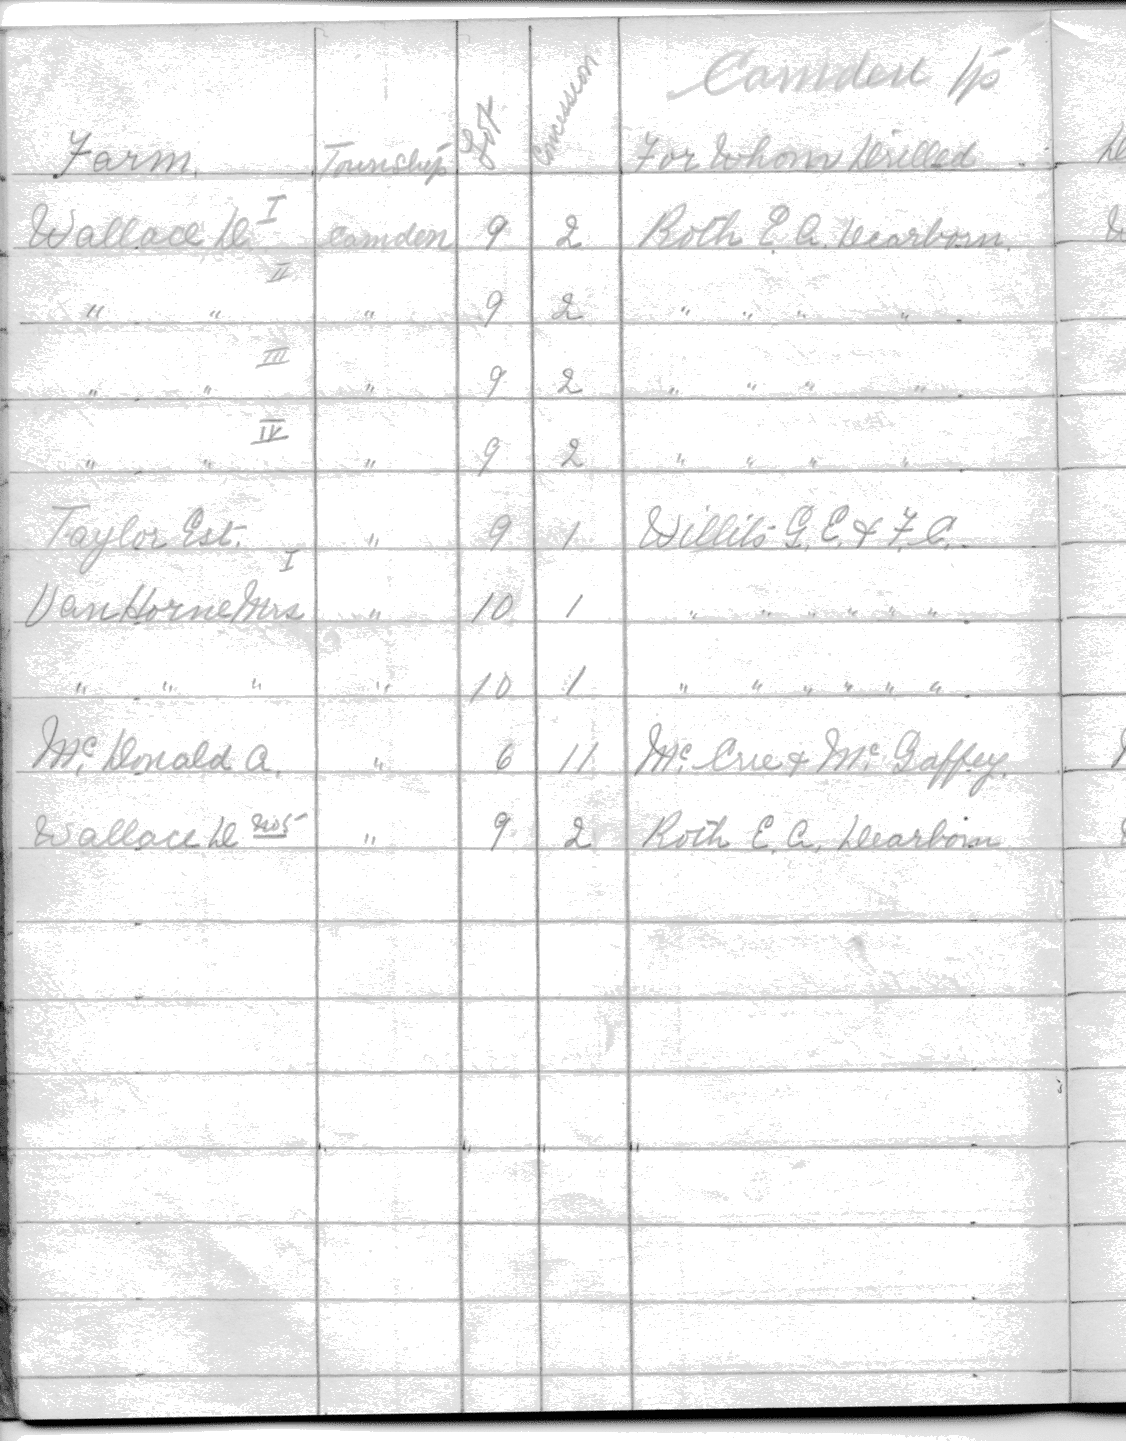 Camden Tp
Farm. Township Lot Concession For Whom Drilled
Wallace D. I Camden 9 2 Roth E. A. Dearborn.
" " II " 9 2 " " " "
" " III " 9 2 " " " "
" " IV " 9 2 " " " "
Taylor Est. " 9 1 Willits G. E. & F. C.
I
Van Horne Mrs " 10 1 " " " " " "
" " " " 10 1 " " " " " "
Mc. Donald A. " 6 11 Mc. Crie & Mc. Gaffey.
Wallace D No 5 " 9 2 Roth E. A. Dearborn